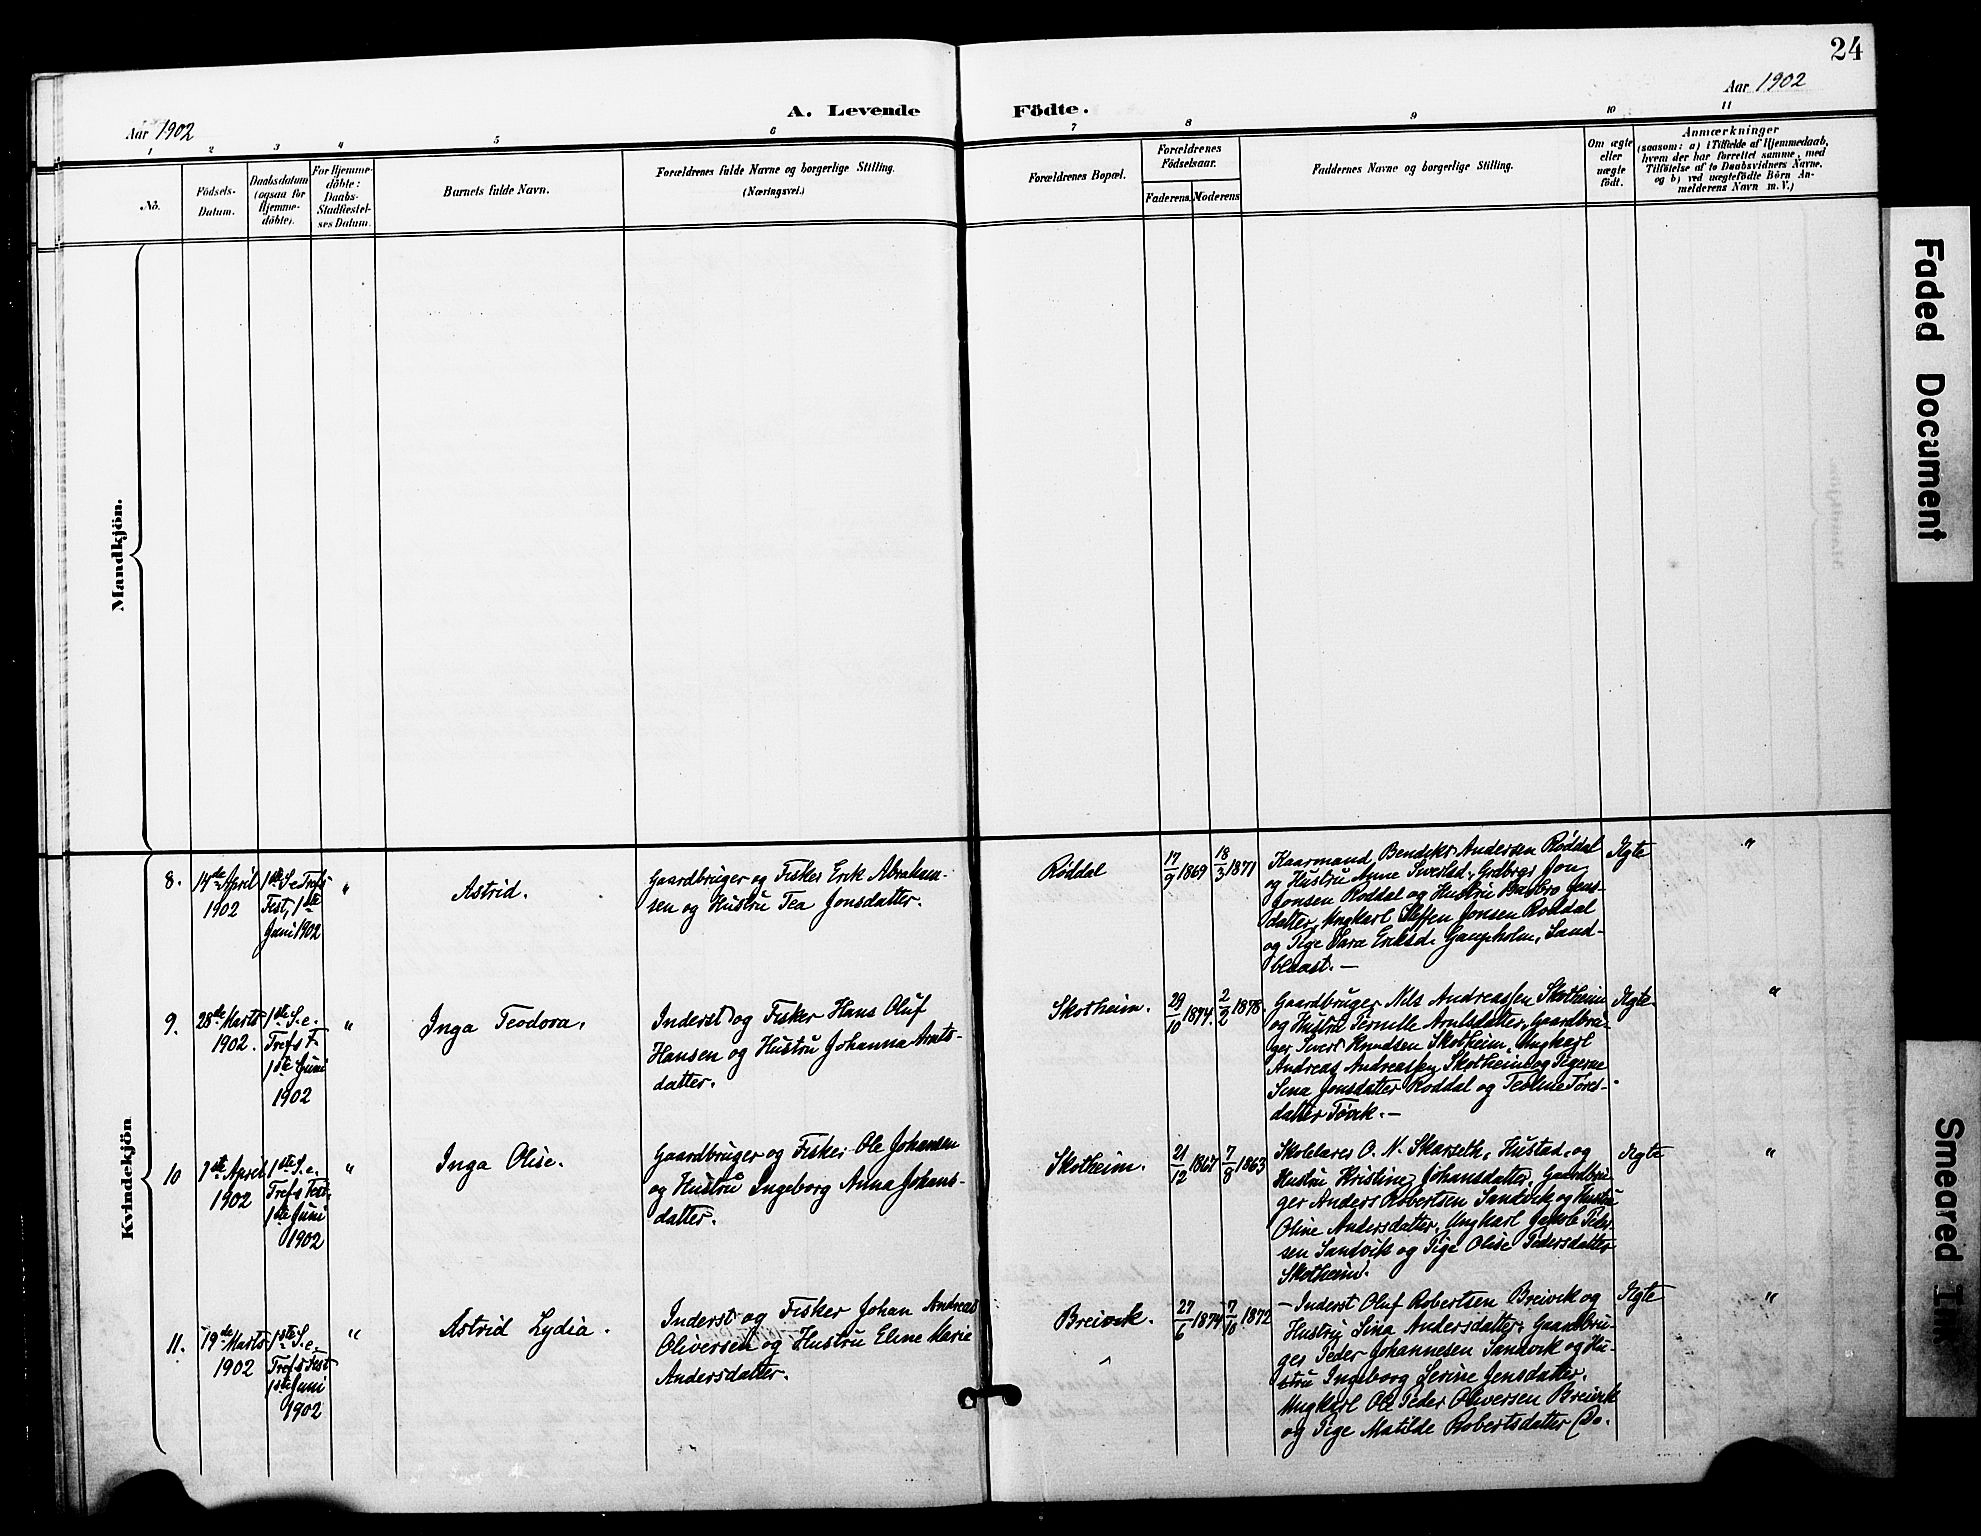 24
Aar 1902
A. Levende Födte.
Aar 1902
1 2 3 4 5 6 7 8 9 10 11
No.
Födsels-
Datum.
Daabsdatum
(ogsaa for
Hjemme-
döbte).
For Hjemme-
döbte:
Daabs-
Stadfæstel-
ses Datum.
Barnets fulde Navn.
Forældrenes fulde Navne og borgerlige Stilling.
(Næringsvei.)
Forældrenes Bopæl.
Forældrenes
Födselsaar.
Faderens. Moderens
Faddernes Navne og borgerlige Stilling.
Om ægte
eller
uægte
födt.
Anmærkninger
(saasom: a) i Tilfælde af Hjemmedaab,
hvem der har forrettet samme, med
Tilföielse af to Daabsvidners Navne,
og b) ved uægtefödte Börn An-
melderens Navn m. V.)
Mandkjön.
Kvindekjön
8.
14de April
1902
1ste S. e. Trefs
Fest, 1ste
Juni 1902
"
Astrid.
Gaardbruger og Fisker Erik Abraham-
sen og Hustru Tea Jonsdatter.
Røddal
17/9 1869
18/3 1871
Kaarmand Bendikt Andersen Røddal
og Hustru Anne Sivertsd., Grdbrgr Jon
Jonsen Røddal og Hustru Barbro Jens-
datter, Ungkarl Steffen Jonsen Røddal
og Pige Sara Eriksd. Gaupholm, Sand-
blaast. —
Ægte
"
9.
28de Marts
1902.
1ste S. e.
Trefs F.
1ste Juni
1902
"
Inga Teodora.
Inderst og Fisker Hans Oluf
Hansen og Hustru Johanna Arnts-
datter.
Skotheim.
29/10 1874.
2/2 1878
Gaardbruger Nils Andreassen Skotheim
og Hustru Pernille Arntsdatter, Gaardbru-
ger Sivert Knudsen Skotheim, Ungkarl
Andreas Andreassen Skotheim og Pigerne
Sina Jonsdatter Røddal og Teoline Tores-
datter Tøvik. —
Ægte
"
10
7de April
1902
1ste S. e.
Trefs Fest,
1ste Juni
1902
"
Inga Olise.
Gaardbruger og Fisker Ole Johansen
og Hustru Ingeborg Anna Johans-
datter.
Skotheim.
21/12 1867
7/8 1863
Skolelærer O. N. Skarseth, Hustad, og
Hustru Kristine Johansdatter, Gaardbru-
ger Anders Robertsen Sandvik og Hustru
Oline Andersdatter, Ungkarl Jakob Peder-
sen Sandvik og Pige Olise Pedersdatter
Skotheim.
Ægte
"
11.
19de Marts
1902
1ste S. e.
Trefs Fest
1ste Juni
1902
"
Astrid Lydia.
Inderst og Fisker Johan Andreas
Oliversen og Hustru Eline Marie
Andersdatter.
Breivik.
27/6 1874
7/10 1872
— Inderst Oluf Robertsen Breivik og
Hustru Sina Andersdatter, Gaardbru-
ger Peder Johannesen Sandvik og Hu-
stru Ingeborg Serine Jensdatter,
Ungkarl Ole Peder Oliversen Breivik
og Pige Matilde Robertsdatter Do.
Ægte
"
Faded Document
Smeared Ink